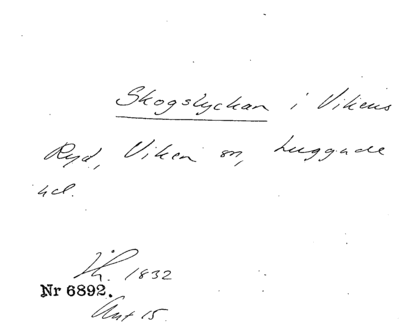 Skogslyckan i Vikens
Ryd, Viken sn, Luggude
hd.
Jh. 1832
Nr 6892.
Ant 15.